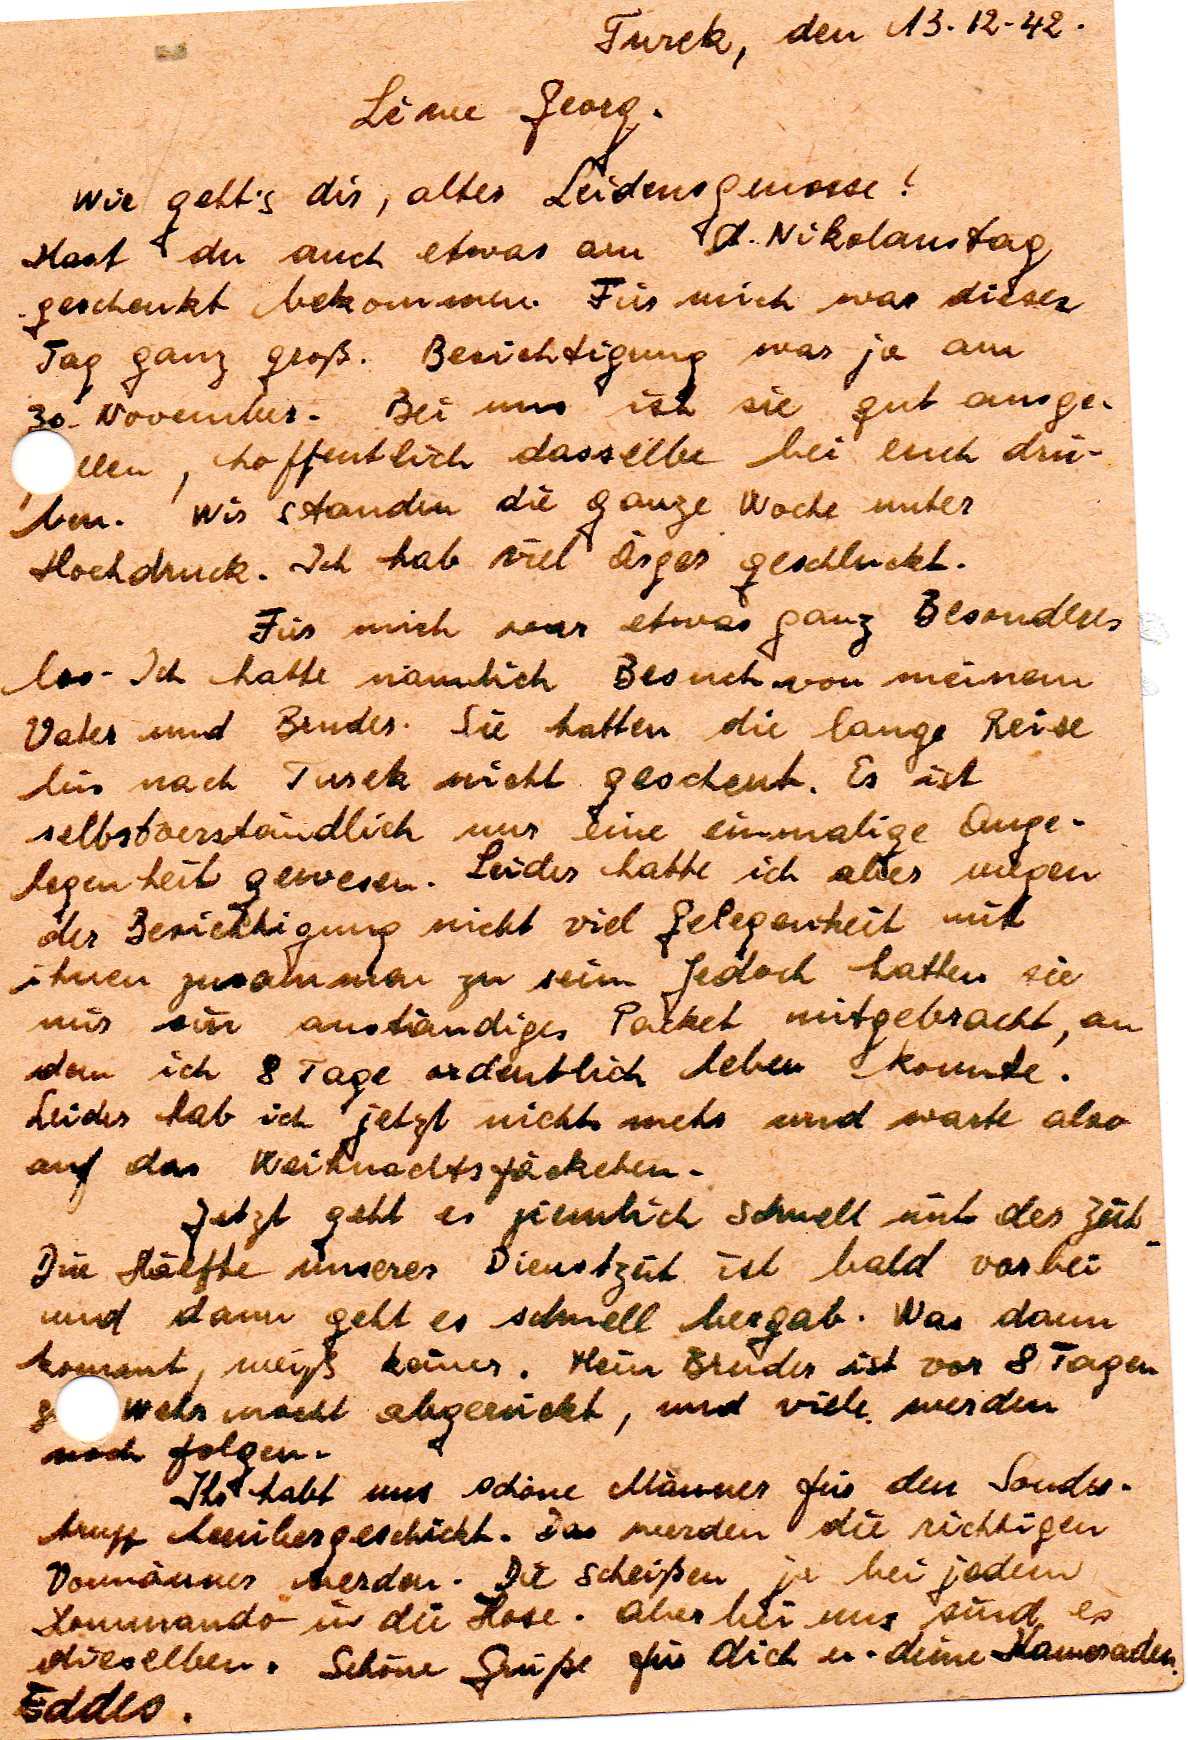 Turek, den 13.12-42.
Georg.
Wie geht's dir, alter Leidensgenosse!
Hast du auch etwas am St. Nikolaustag
geschenkt bekommen. Für mich war dieser
Tag ganz groß. Besichtigung war ja am
30. November. Bei uns ist sie gut ausge-
llen, hoffentlich dasselbe bei euch drü-
ben. Wir standen die ganze Woche unter
Hochdruck. Ich hab viel Ärger geschluckt.
Für mich war etwas ganz Besonderes
los. Ich hatte nämlich Besuch von meinem
Vater und Bruder. Sie hatten die lange Reise
bis nach Turek nicht gescheut. Es ist
selbstverständlich nur eine einmalige Ange-
legenheit gewesen. Leider hatte ich aber wegen
der Besichtigung nicht viel Gelegenheit mit
ihnen zusammen zu sein. Jedoch hatten sie
mir ein anständiges Packet mitgebracht, an
dem ich 8 Tage ordentlich leben konnte.
Leider hab ich jetzt nichts mehr und warte also
auf das Weihnachtspäckchen.
Jetzt geht es ziemlich schnell mit der Zeit.
Die Häefte unserer Dienstzeit ist bald vorbei
und dann geht es schnell bergab. Was dann
kommt, weiß keiner. Mein Bruder ist vor 8 Tagen
z Wehrmacht abgerückt, und viele werden
noch folgen.
Ihr habt uns schöne Männer für den Sonder-
trupp herübergeschickt. Das werden die richtigen
Vormänner werden. Die scheißen ja bei jedem
Kommando in die Hose. Aber bei uns sind es
dieselben. Schöne Grüße für dich u. deine Kameraden.
Eddes.